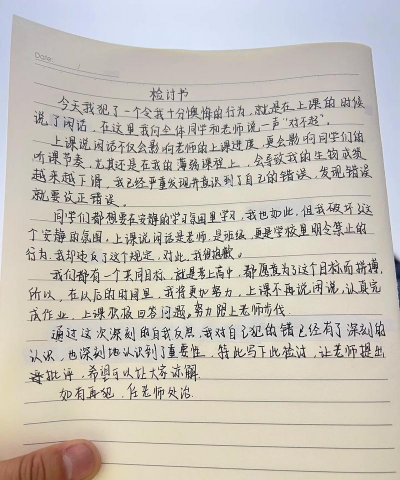 Date:
检讨书
今天我犯了一个令我十分懊悔的行为，就是在上课的时候
说了闲话，在这里我向全体同学和老师说一声“对不起”。
上课说闲话不仅会影响老师的上课进度，更会影响同学们的
听课节奏，尤其还是在我的薄弱课程上，会导致我的生物成绩
越来越下滑，我已经严重发现并意识到了自己的错误，发现错误
就要改正错误。
同学们都想要在安静的学习氛围里学习，我也如此，但我破坏了这
个安静的氛围，上课说闲话是老师，是班级，更是学校里明令禁止的
行为，我却违反了这个规定，对此，我很抱歉。
我们都有一个共同目标，就是考上高中，都愿意为了这个目标而拼搏，
所以，在以后的时间里，我将更加努力，上课不再说闲说，认真完
成作业，上课积极回答问题，努力跟上老师步伐
通过这次深刻的自我反思，我对自己犯的错已经有了深刻的
认识，也深刻地认识到了重要性，特此写下此检讨，让老师提出
批评，希望可以让大家谅解.
如有再犯，任老师处治.